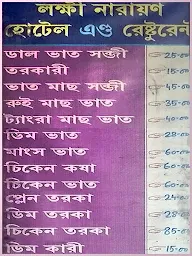 লক্ষী নারায়ণ
হোটেল এণ্ড রেষ্টুরেন্ট
ডাল ভাত সব্জী 25-00
তরকারী 15-0
ভাত মাছ সব্জী 45-0
রুই মাছ ভাত 35-0
ট্যাংরা মাছ ভাত 40-0
ডিম ভাত 28-00
মাংস ভাত 60-00
চিকেন কষা 60-00
চিকেন ভাত 60-0
প্লেন তরকা 24-0
ডিম তরকা 28-0
চিকেন তরকা 85-0
ডিম কারী 15-0